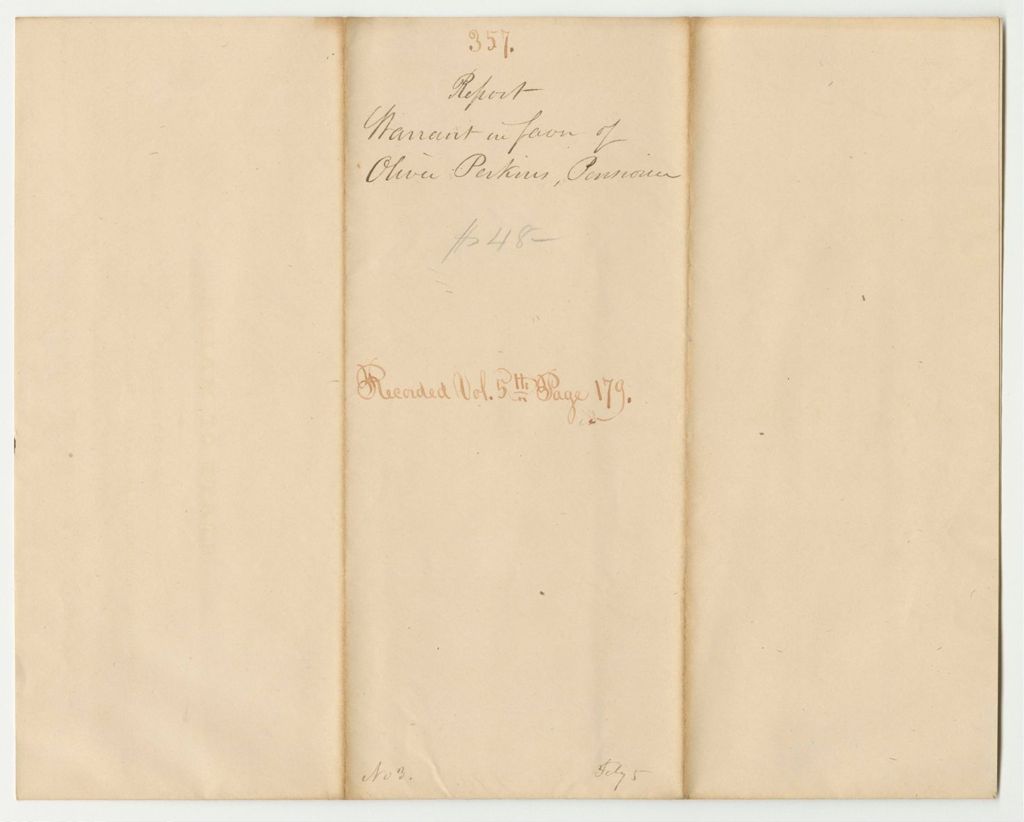 357.
Report
Warrant in favor of
Oliver Perkins, Pensioner
$48—
Recorded Vol. 5th Page 179.
No 3. Feby 5